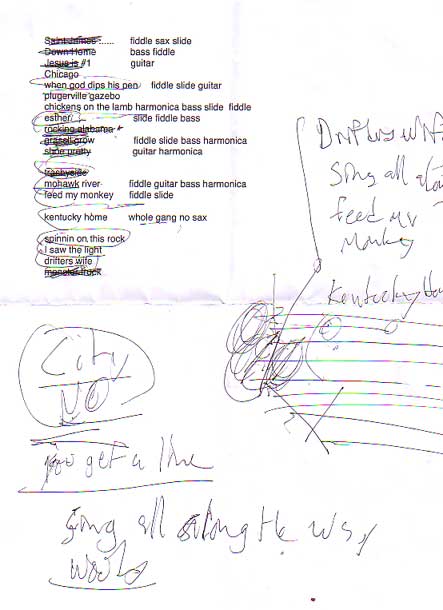 Saint James ...... fiddle sax slide
Down Home bass fiddle
Jesus is #1 guitar
Chicago
when god dips his pen fiddle slide guitar
plugerville gazebo
chickens on the lamb harmonica bass slide fiddle
esther slide fiddle bass
rocking alabama
grow fiddle slide bass harmonica
pretty guitar harmonica
mohawk river fiddle guitar bass harmonica
feed my monkey fiddle slide
kentucky home whole gang no sax
spinnin on this rock
I saw the light
drifters wife
monster truck
Drifters wife
Sing all
feed my
monkey
Kentucky
City
you get a line
Sing all along the way